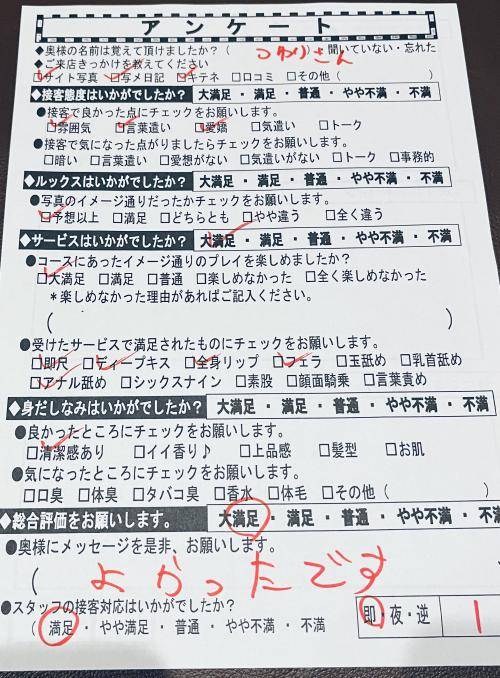 アンケート
◆奥様の名前は覚えて頂けましたか?( さん 聞いていない・忘れた
◆ご来店きっかけを教えてください
□サイト写真 □写メ日記 □キテネ □口コミ □その他( )
◆接客態度はいかがでしたか? 大満足・満足・普通・やや不満・不満
●接客で良かった点にチェックをお願いします。
□雰囲気 □言葉遣い □愛嬌 □気遣い □トーク
●接客で気になった点がありましたらチェックをお願いします。
□暗い □言葉遣い □愛想がない □気遣いがない □トーク □事務的
◆ルックスはいかがでしたか? 大満足・満足・普通・やや不満・不満
●写真のイメージ通りだったかチェックをお願いします。
□予想以上 □満足 □どちらとも □やや違う □全く違う
◆サービスはいかがでしたか? 大満足・満足・普通・やや不満・不満
●コースにあったイメージ通りのプレイを楽しめましたか?
□大満足 □満足 □普通 □楽しめなかった □全く楽しめなかった
*楽しめなかった理由があればご記入ください。
( )
●受けたサービスで満足されたものにチェックをお願いします。
□即尺 □ディープキス □全身リップ □フェラ □玉舐め □乳首舐め
□アナル舐め □シックスナイン □素股 □顔面騎乗 □言葉責め
◆身だしなみはいかがでしたか? 大満足・満足・普通・やや不満・不満
●良かったところにチェックをお願いします。
□清潔感あり □イイ香り♪ □上品感 □髪型 □お肌
●気になったところにチェックをお願いします。
□口臭 □体臭 □タバコ臭 □香水 □体毛 □その他(
◆総合評価をお願いします。 大満足・満足・普通・やや不満・不満
●奥様にメッセージを是非、お願いします。
( よかったです
●スタッフの接客対応はいかがでしたか?
( 満足・やや満足・普通・やや不満・不満
即・夜・逆 1